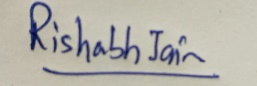 Rishabh Jain